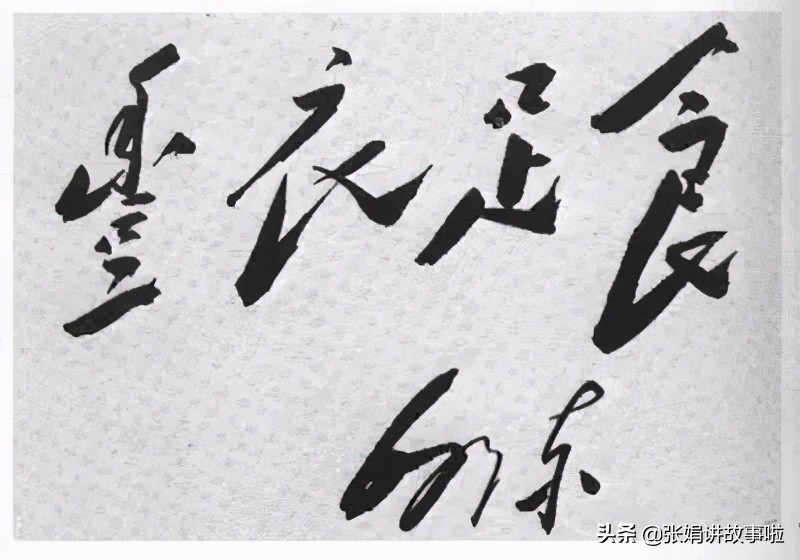 豐衣足食
毛泽东
头条 @张娟讲故事啦